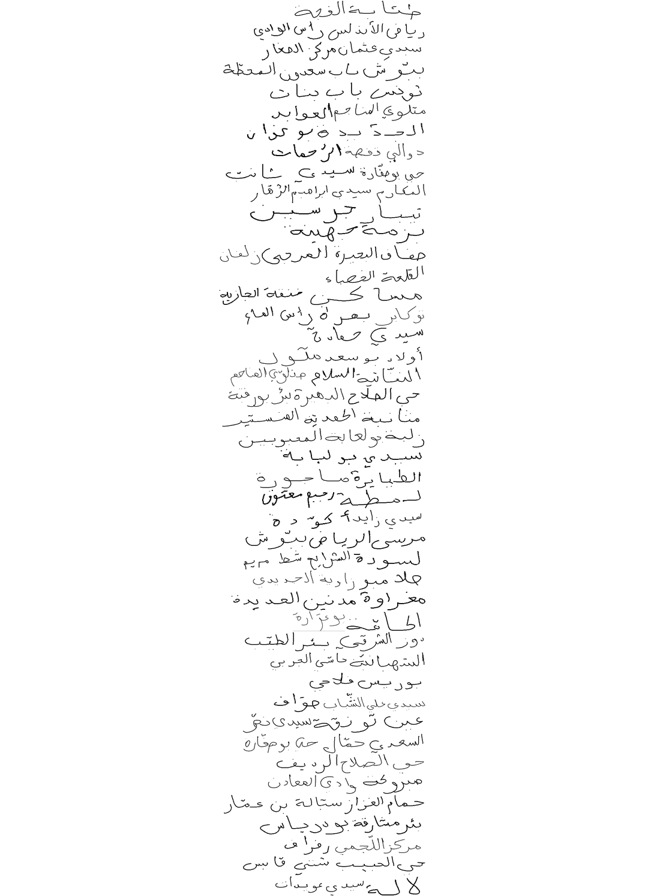 طشابة القوية
رياض الأندلس راس الوادي
سيدي عثمان مركز الصغار
بتوش باب سعدون المحطة
تونس باب بنات
متلوي المناجم العوابد
الجديدة بوعزان
دوالي قفصة الرحمات
حي بوصفارة سيدي شانت
المكارم سيدي ابراهيم الزهار
تيبار جرسين
بزمة جهينة
ضفاف البحيرة الفرجي زلفان
القلعة الفضاء
مساكن خنقة الجازية
بوكابر بهرة راس الماء
سيدي حمادة
أولاد بوسعد متول
التنانية السلام متلوي المناجم
حي الصلاح الدهيرة بئر بورقبة
منانبة الحمدية المنستير
زلبة بولعابة المعبوبين
سيدي بولبابة
الطبايرة ساحورة
لمطة ربيع معتوق
سيدي زايد أكودة
مرسى الرياض بتوش
لسودة الشرايع شط مريم
جلا مبو زاوية الحديدي
مغراوة مدنين الجديدة
الحامة بوغرارة
دوز الشرقي بئر الطيب
الشهبانية ماسي الجربي
بوريس فلاحي
سيدي علي الشباب صواف
عين تونقة سيدي نصر
السعدي حمال حي بوصفارة
حي الصلاح الرديف
مبروكة وادي المعادن
حمام الغزاز ستالة بن عمار
بئر مشارقة بودرياس
مركز اللجمي رفراف
حي الحبيب شنني قابس
لالة سيدي عويدات